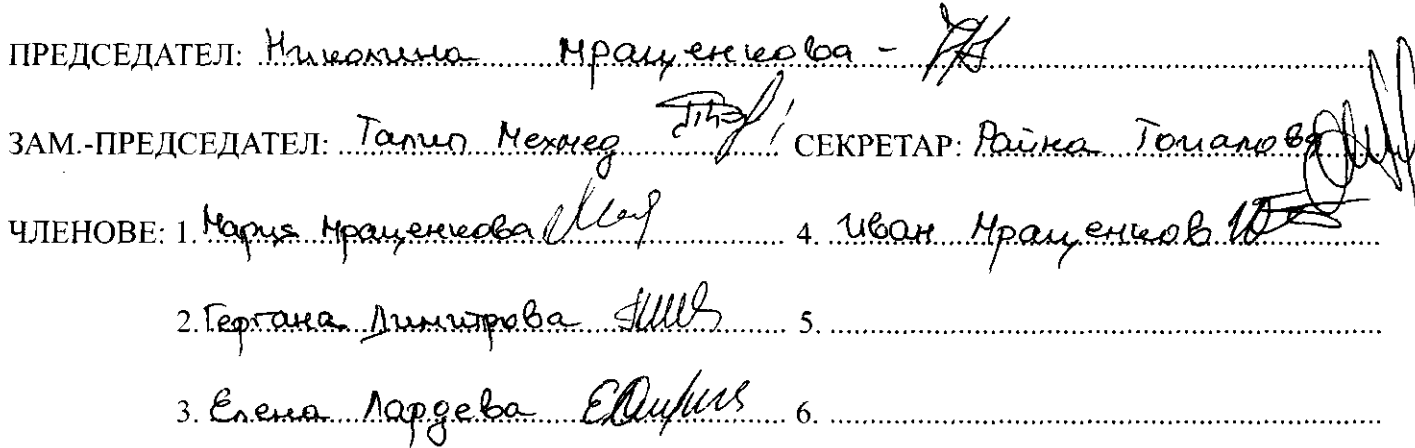 ПРЕДСЕДАТЕЛ: Николина Мращенкова -
ЗАМ.-ПРЕДСЕДАТЕЛ: Талип Мехмед СЕКРЕТАР: Райна Томанова
ЧЛЕНОВЕ: 1. Мария Мращенкова 4. Иван Мращенков
2. Гергана Димитрова 5.
3. Елена Лардева 6.